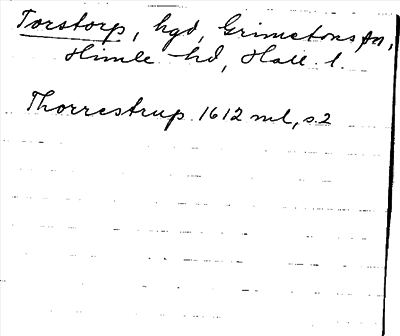 Torstorp, hgd, Grimetons sn,
Himle hd, Hall. l.
Thorrestrup 1612 ml, s. 2